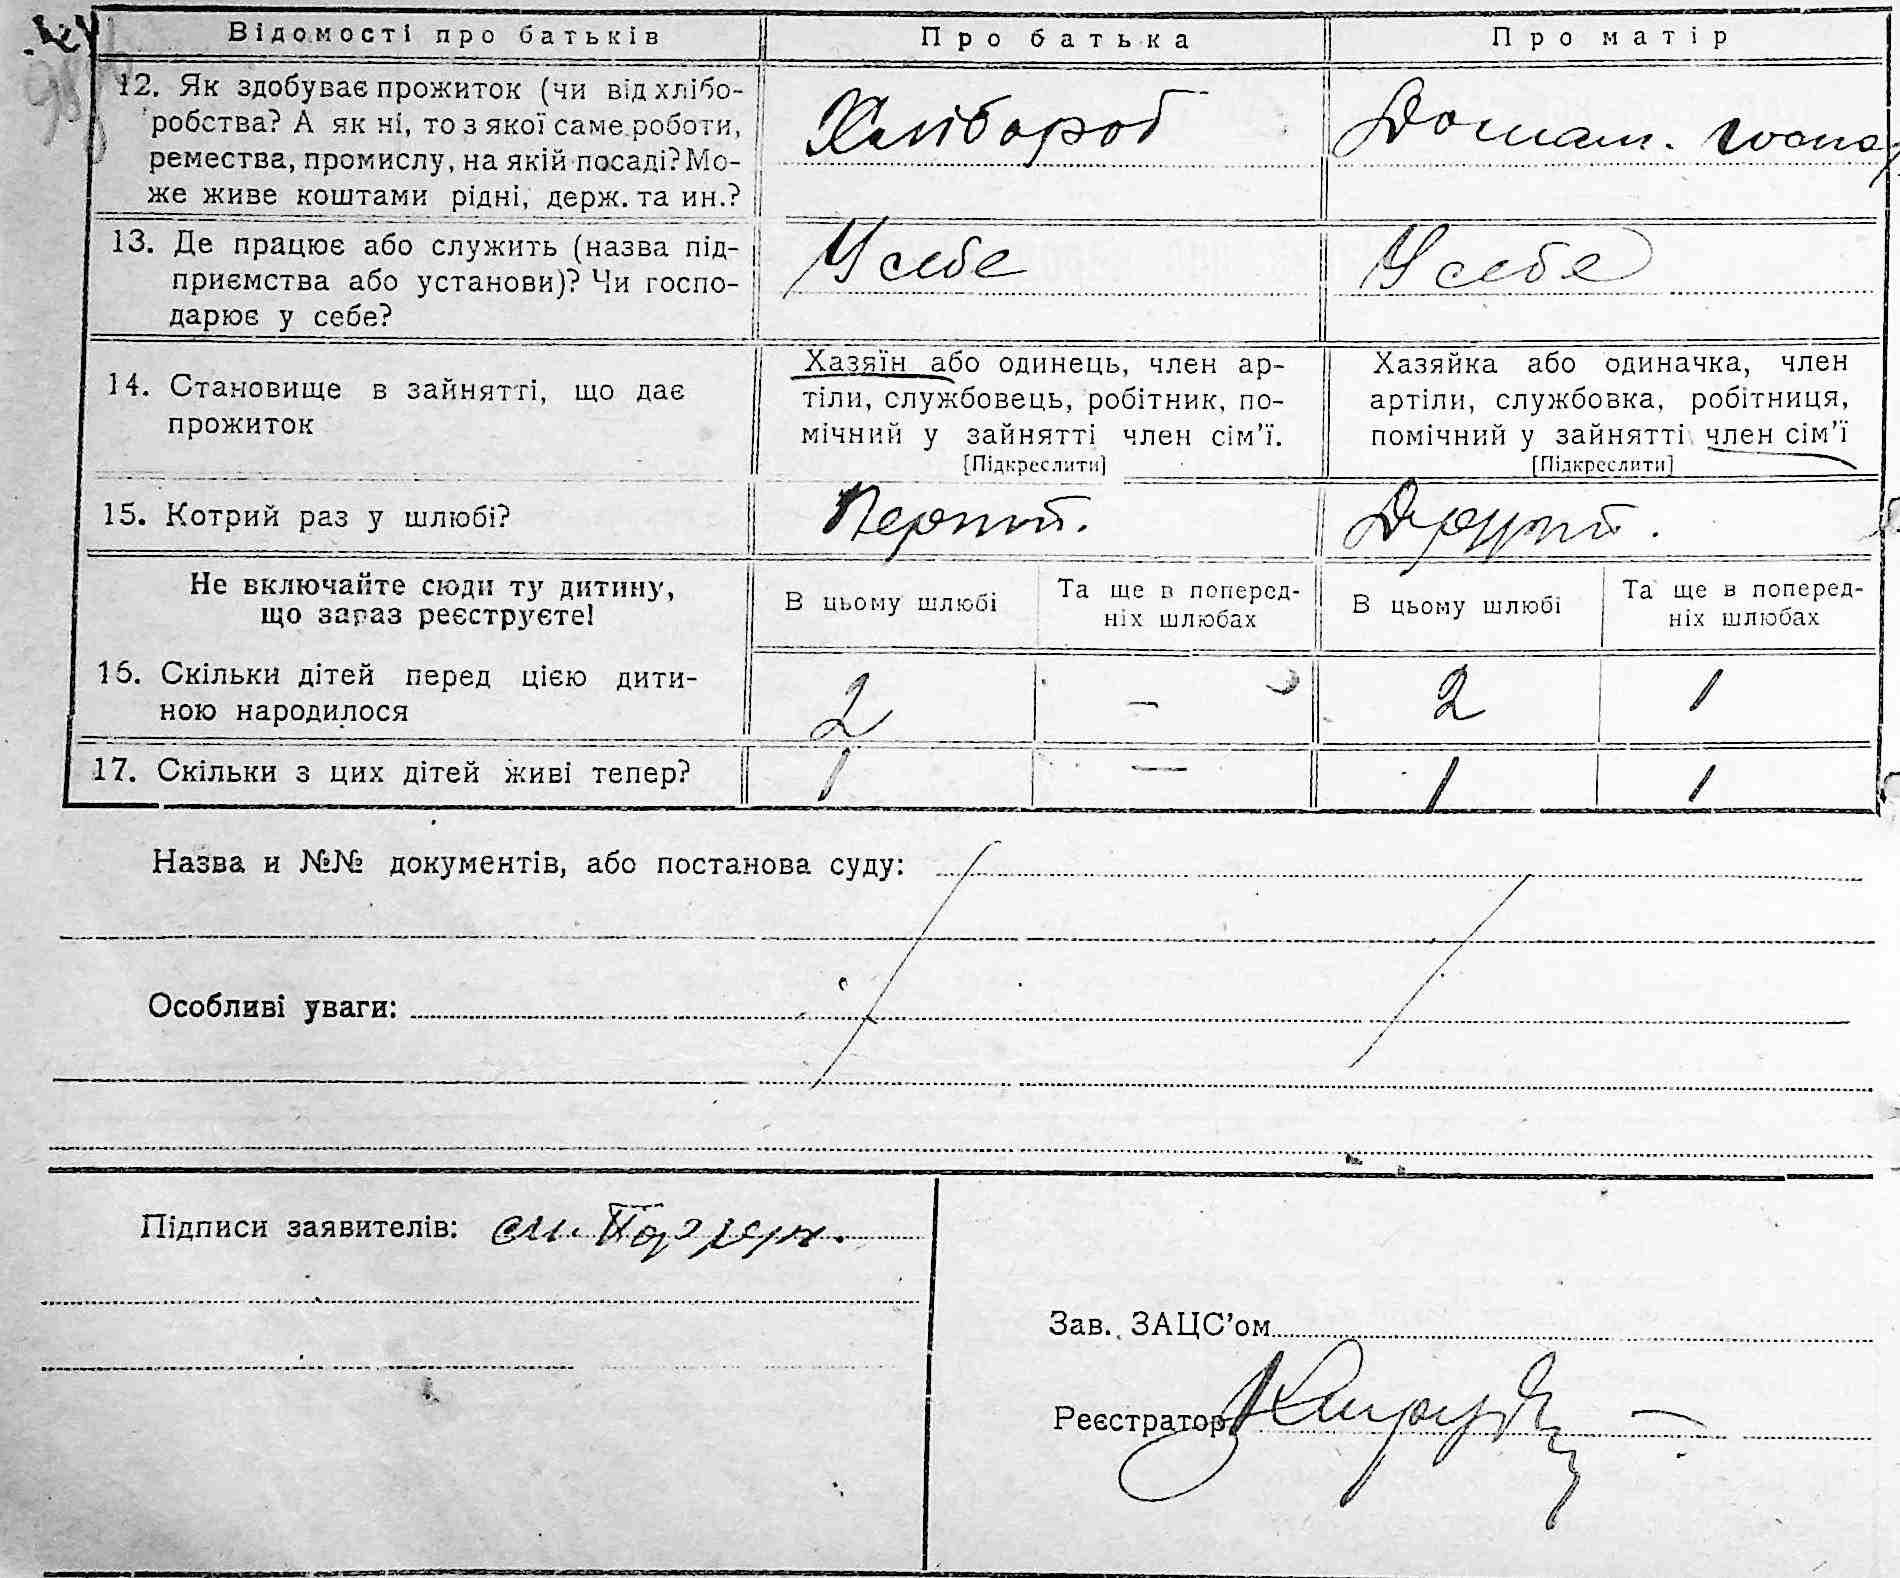 Відомості про батьків
Про батька
Про матір
12. Як здобуває прожиток (чи від хлібо-
робства? А як ні, то з якої саме роботи,
ремества, промислу, на якій посаді? Мо-
же живе коштами рідні, держ. та ин.?
Хлібороб
Домаш.
13. Де працює або служить (назва під-
приємства або установи)? Чи госпо-
дарює у себе?
У себе
У себе
14. Становище в зайнятті, що дає
прожиток
Хазяїн або одинець, член ар-
тіли, службовець, робітник, по-
мічний у зайнятті член сім'ї.
[Підкреслити]
Хазяйка або одиначка, член
артіли, службовка, робітниця,
помічний у зайнятті член сім'ї
[Підкреслити]
15. Котрий раз у шлюбі?
Перший.
Другий.
Не включайте сюди ту дитину,
що зараз реєструєте!
В цьому шлюбі
Та ще в поперед-
ніх шлюбах
В цьому шлюбі
Та ще в поперед-
ніх шлюбах
16. Скільки дітей перед цією дити-
ною народилося
2
-
2
1
17. Скільки з цих дітей живі тепер?
1
-
1
1
Назва и №№ документів, або постанова суду:
Особливі уваги:
Підписи заявителів:
Зав. ЗАЦС'ом
Реєстратор